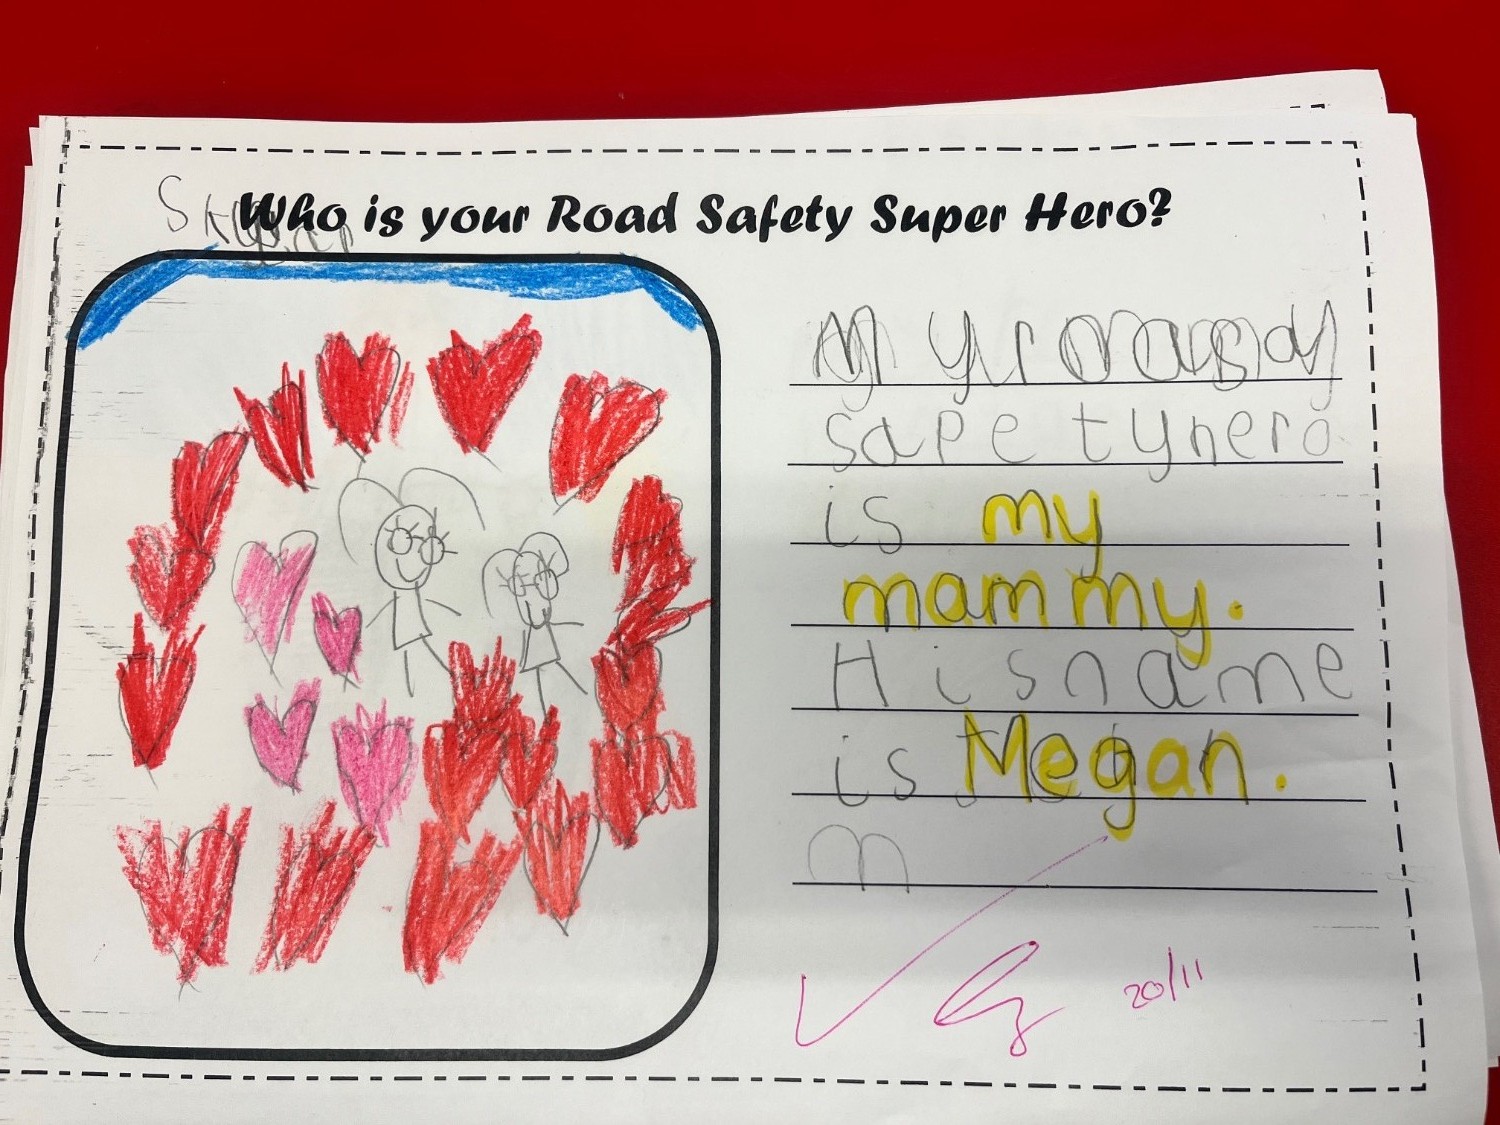 Who is your Road Safety Super Hero?
My r roady
sape tyhero
is my
mammy.
Hisname
is Megan.
m
20/11